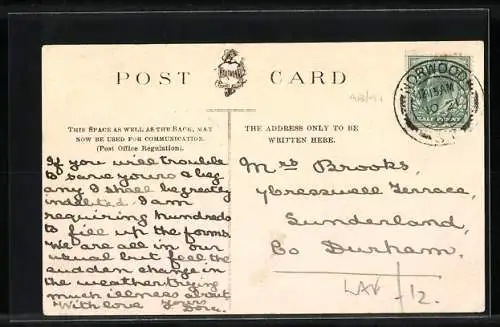 POST CARD
NORWOOD
12.15 AM
HALFPENNY
THIS SPACE AS WELL AS THE BACK, MAY
NOW BE USED FOR COMMUNICATION.
(Post Office Regulation).
THE ADDRESS ONLY TO BE
WRITTEN HERE.
If you will trouble
to save yours I beg
any I shall be greatly
indebted. I am
requiring hundreds
to fill up the forms.
We are all in our
usual but feel the
sudden change in
the weather. trying
much illness about
With love yours
Dora.
Mrs Brooks,
Cresswell Terrace,
Sunderland,
Co Durham.
12.